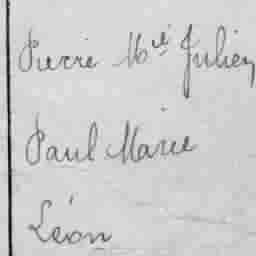 Pierre Mie Julien
Paul Marie
Léon